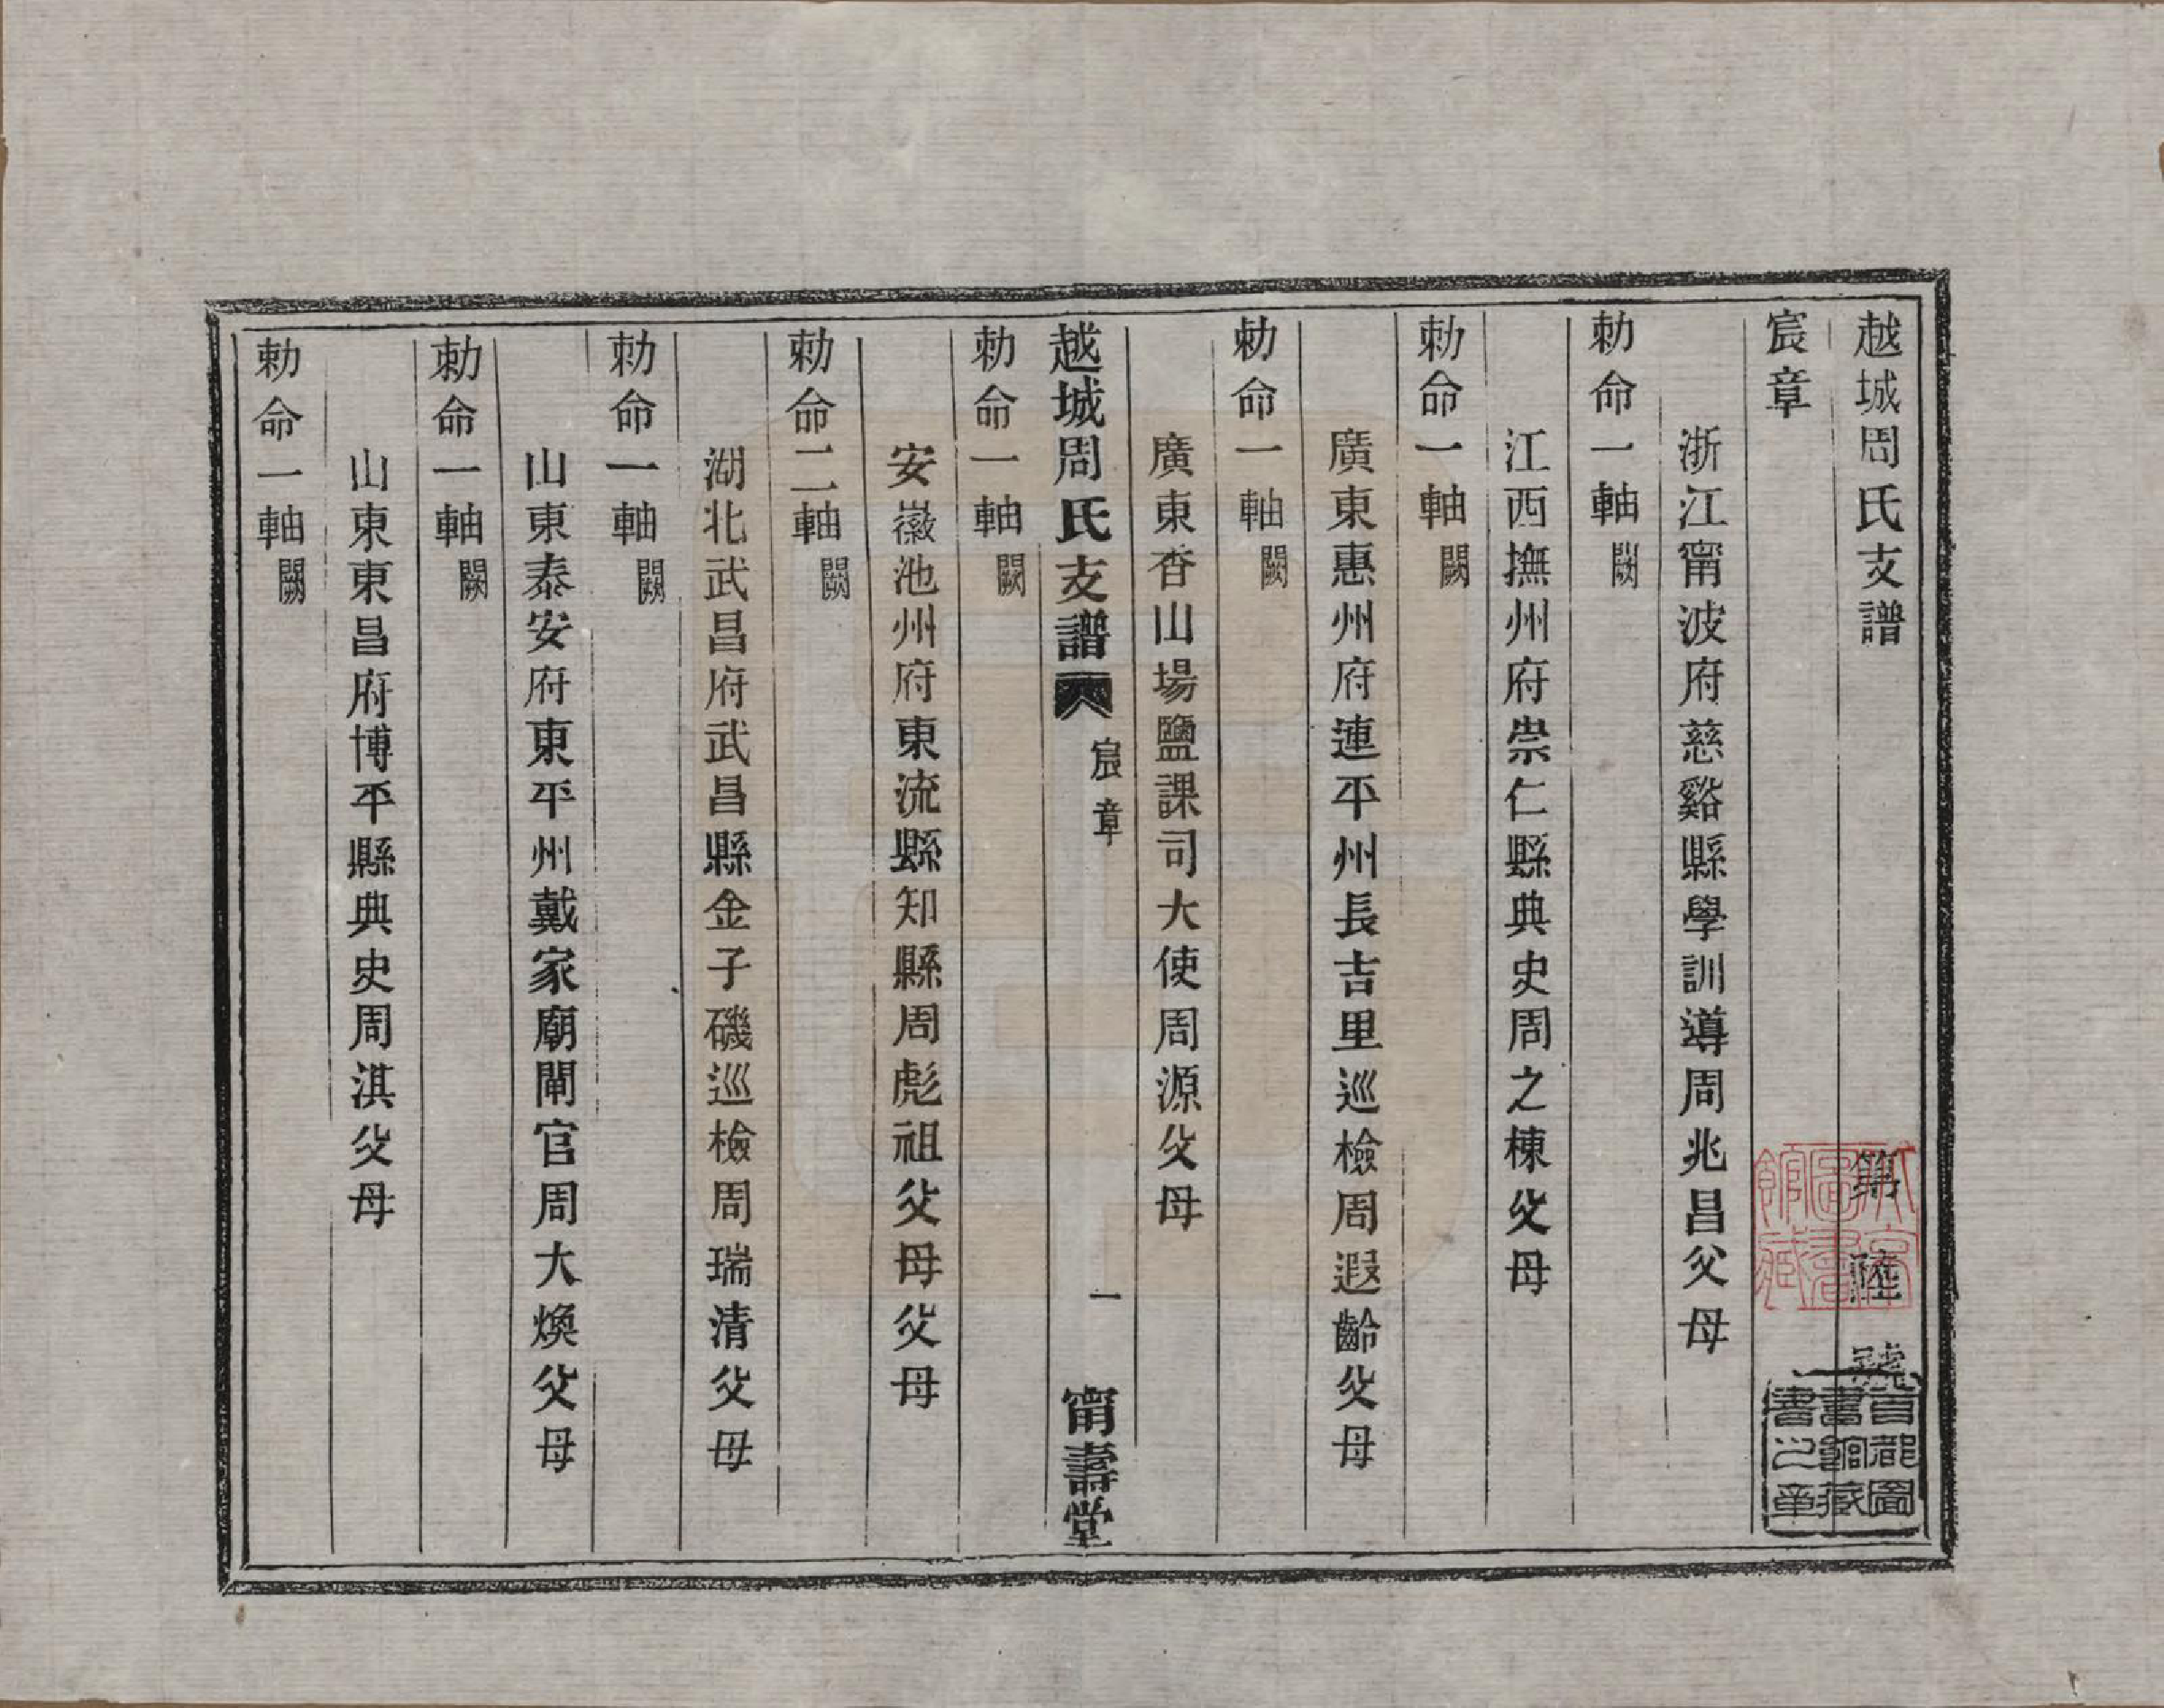 越城周氏支譜 第陸號
宸章
浙江甯波府慈谿縣學訓導周兆昌父母
勅命一軸闕
江西撫州府崇仁縣典史周之棟父母
勅命一軸闕
廣東惠州府連平州長吉里巡檢周遐齡父母
勅命一軸闕
廣東香山場鹽課司大使周源父母
越城周氏支譜 宸章 一 甯壽堂
勅命一軸闕
安徽池州府東流縣知縣周彪祖父母父母
勅命二軸闕
湖北武昌府武昌縣金子磯巡檢周瑞清父母
勅命一軸闕
山東泰安府東平州戴家廟閘官周大煥父母
勅命一軸闕
山東東昌府博平縣典史周淇父母
勅命一軸闕
首都圖
書館藏
書之章